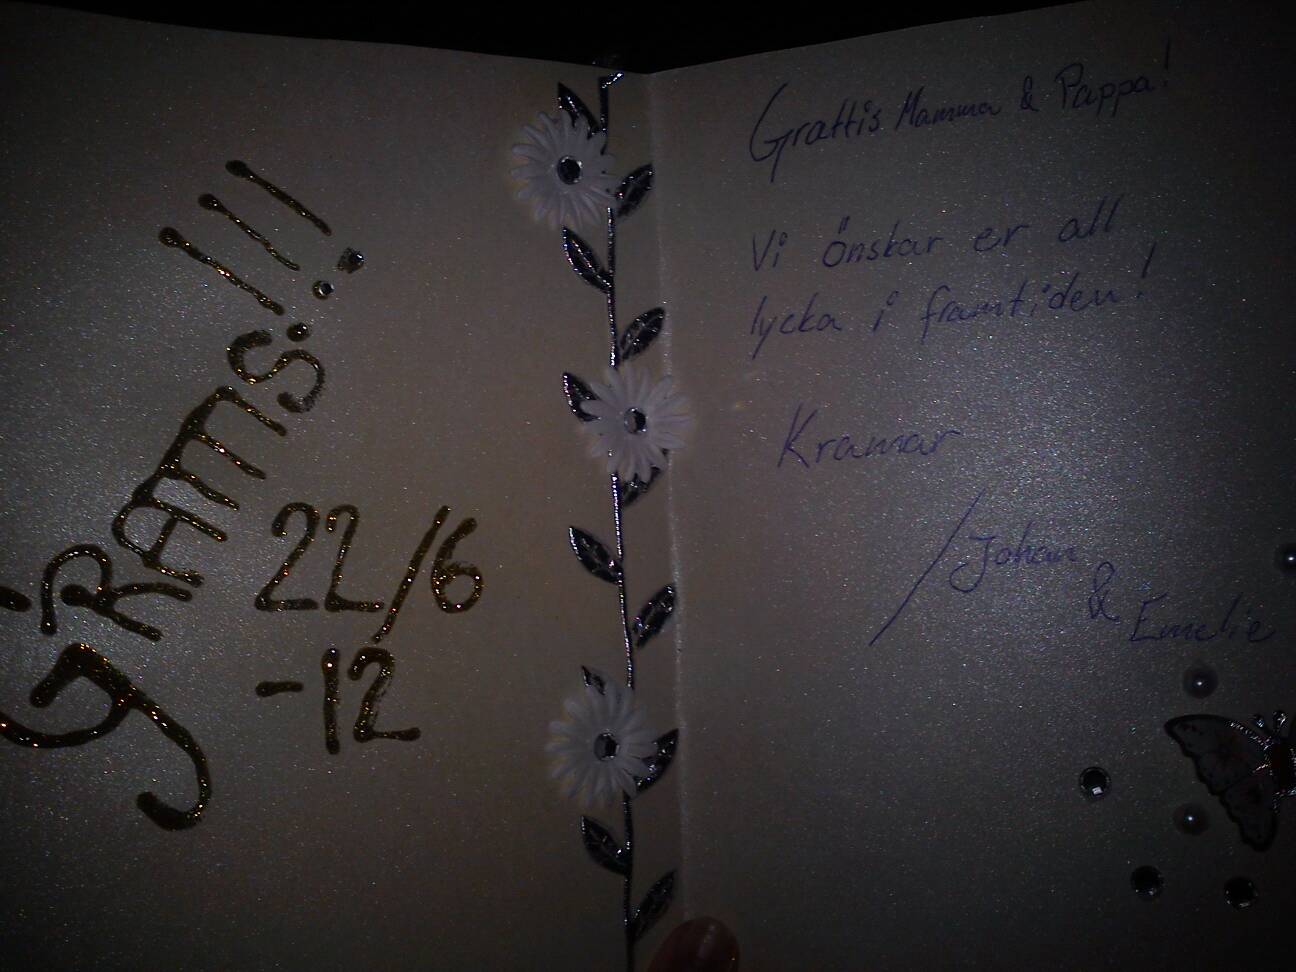 GRATTIS!!!
22/6
-12
Grattis Mamma & Pappa!
Vi önskar er all
lycka i framtiden!
Kramar
/Johan
&
Emelie